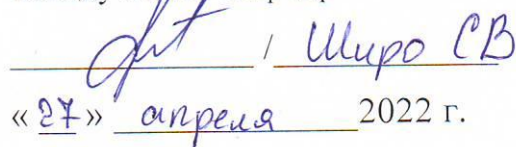 / Широ СВ
«27» апреля 2022 г.